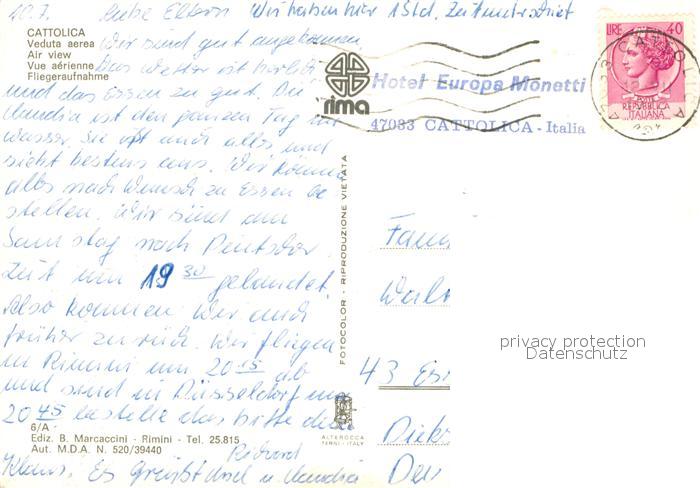 10.7. Liebe Eltern Wir haben hier 1 Std. Zeitunterschied
CATTOLICA
Veduta aerea
Air view
Vue aérienne
Fliegeraufnahme
Wir sind gut angekommen
Das Wetter ist herrlich
und das Essen zu gut. Die
Claudia ist den ganzen Tag im
Wasser. Sie ißt auch alles und
sieht bestens aus. Wir können
alles nach Wunsch zu Essen be
stellen. Wir sind am
Samstag nach Deutscher
Zeit um 19 30 gelandet
Also kommen wir auch
früher zurück. Wir fliegen
in Rimini um 20 15 ab
und sind in Düsseldorf um
20 45 bestelle das bitte dem
6/A -
Ediz. B. Marcaccini - Rimini - Tel. 25.815
Aut. M.D.A. N. 520/39440
Richard
Klaus. Es grüßt Euch u. Claudia
rima
Hotel Europa Monetti
47033 CATTOLICA - Italia
LIRE 40
POSTE
REPUBBLICA
ITALIANA
FOTOCOLOR - RIPRODUZIONE VIETATA
ALTEROCCA
TERNI - ITALY
Fam
43 Es
privacy protection
Datenschutz